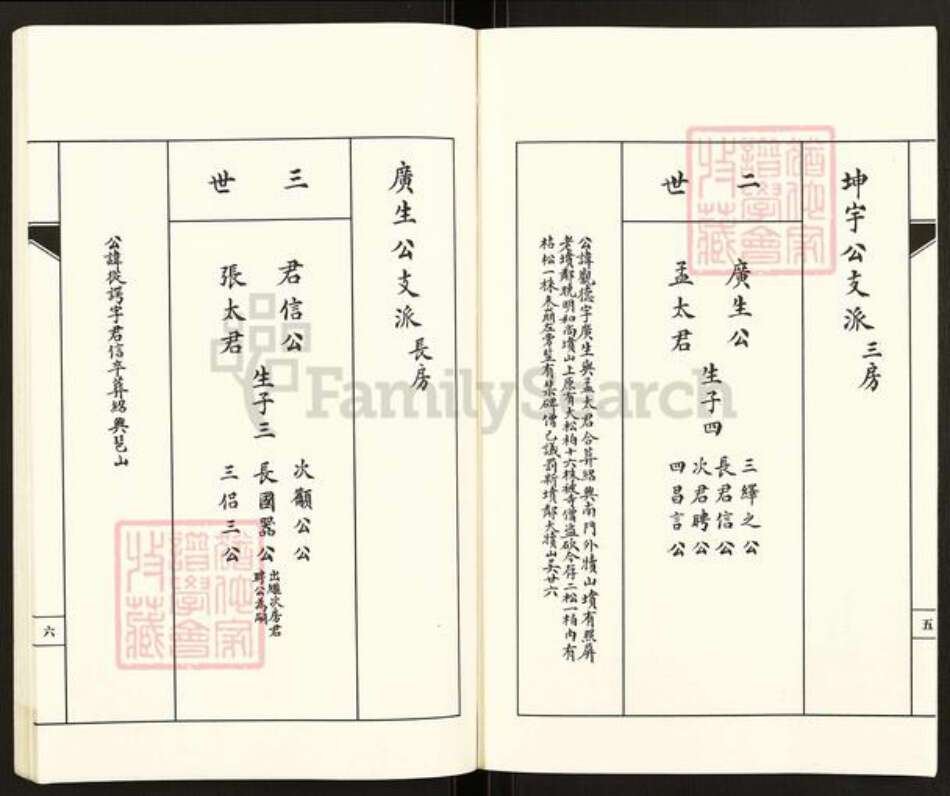 坤宇公支派 三房
二世
廣生公
孟太君
生子四
三繹之公
長君信公
次君聘公
四昌言公
公諱觀德字廣生與孟太君合葬紹興南門外犢山墳有照屏
老墳鄰曉明和尚墳山上原有大松柏十六株被寺僧盜砍今存二松一柏內有
枯松一株
五
廣生公支派 長房
三世
君信公
張太君
生子三
次顯公公
長國器公 出繼次房君聘公為嗣
三侶三公
公諱從諤字君信卒葬紹興琶山
六
猶他家譜學會收藏
猶他家譜學會收藏
FamilySearch